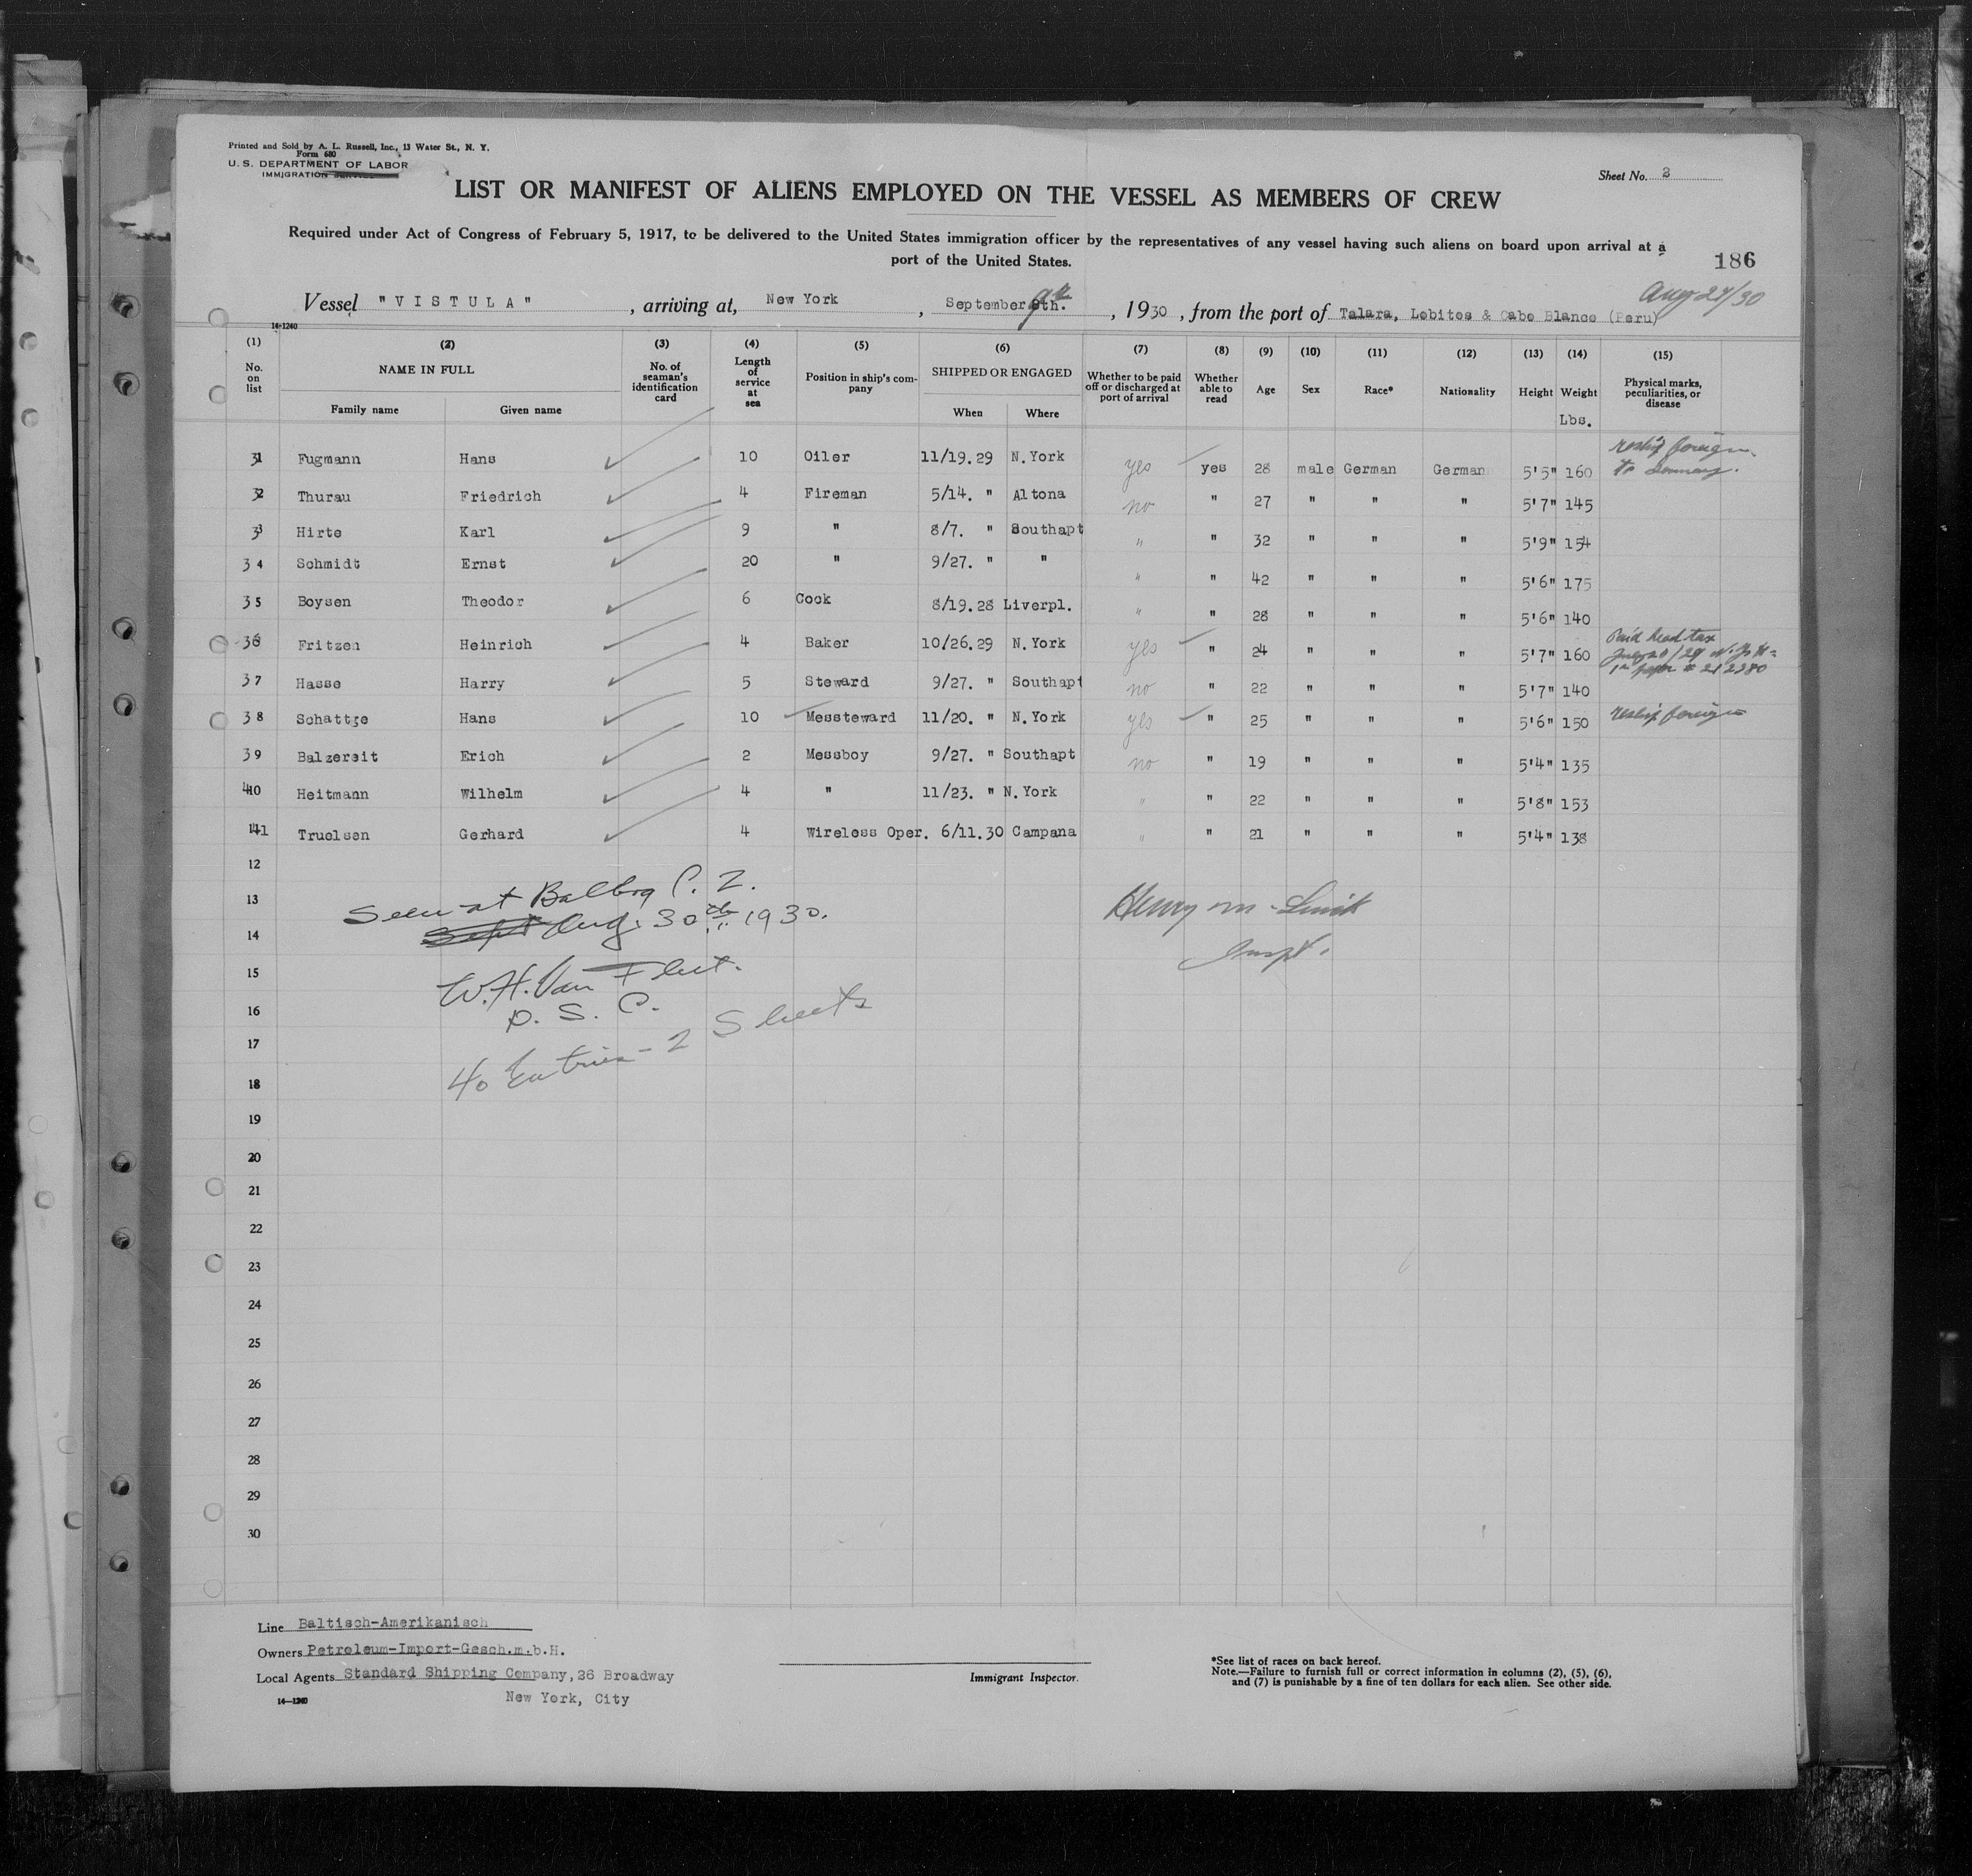 Printed and Sold by A. L. Russell, Inc., 13 Water St., N. Y.
Form 680
U. S. DEPARTMENT OF LABOR
IMMIGRATION SERVICE
Sheet No. 2
LIST OR MANIFEST OF ALIENS EMPLOYED ON THE VESSEL AS MEMBERS OF CREW
Required under Act of Congress of February 5, 1917, to be delivered to the United States immigration officer by the representatives of any vessel having such aliens on board upon arrival at a
port of the United States.
186
Aug 27/30
Vessel "VISTULA", arriving at, New York, September 8th. 9th, 1930, from the port of Talara, Lobitos & Cabo Blanco (Peru)
14-1240
(1) (2) (3) (4) (5) (6) (7) (8) (9) (10) (11) (12) (13) (14) (15)
No. on list NAME IN FULL Family name Given name No. of seaman's identification card Length of service at sea Position in ship's company SHIPPED OR ENGAGED When Where Whether to be paid off or discharged at port of arrival Whether able to read Age Sex Race* Nationality Height Weight Lbs. Physical marks, peculiarities, or disease
31 Fugmann Hans 10 Oiler 11/19.29 N.York yes yes 28 male German German 5'5" 160 reship foreign to Germany.
32 Thurau Friedrich 4 Fireman 5/14. " Altona no " 27 " " " 5'7" 145
33 Hirte Karl 9 " 8/7. " Southapt " " 32 " " " 5'9" 154
34 Schmidt Ernst 20 " 9/27. " " " " 42 " " " 5'6" 175
35 Boysen Theodor 6 Cook 8/19.28 Liverpl. " " 28 " " " 5'6" 140
36 Fritzen Heinrich 4 Baker 10/26.29 N.York yes " 24 " " " 5'7" 160 Paid head tax
37 Hasse Harry 5 Steward 9/27. " Southapt no " 22 " " " 5'7" 140
38 Schattge Hans 10 Messteward 11/20. " N.York yes " 25 " " " 5'6" 150 reship foreign
39 Balzereit Erich 2 Messboy 9/27. " Southapt no " 19 " " " 5'4" 135
40 Heitmann Wilhelm 4 " 11/23. " N.York " " 22 " " " 5'8" 153
41 Truelsen Gerhard 4 Wireless Oper. 6/11.30 Campana " " 21 " " " 5'4" 138
12
13
14
15
16
17
18
19
20
21
22
23
24
25
26
27
28
29
30
Seen at Balboa C. Z.
Sept Aug. 30th 1930.
W.H. Van Fleet.
P. S. C.
40 Entries - 2 Sheets
Henry M.
Inspt.
Line Baltisch-Amerikanisch
Owners Petroleum-Import-Gesch.m.b.H.
Local Agents Standard Shipping Company, 26 Broadway
New York, City
14—1240
Immigrant Inspector.
*See list of races on back hereof.
Note.—Failure to furnish full or correct information in columns (2), (5), (6),
and (7) is punishable by a fine of ten dollars for each alien. See other side.